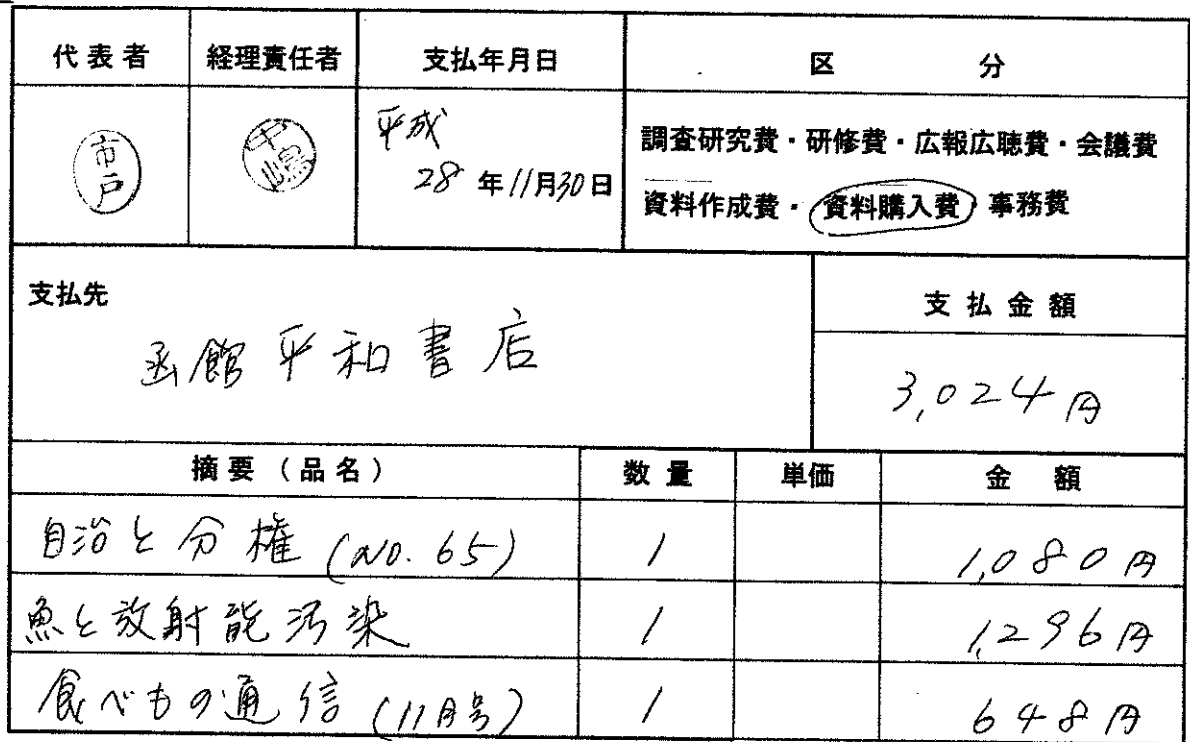 代表者 経理責任者 支払年月日 区 分
市戸 中嶋 平成
28年11月30日
調査研究費・研修費・広報広聴費・会議費
資料作成費・資料購入費・事務費
支払先 支払金額
函館平和書店
3,024円
摘要（品名） 数量 単価 金 額
自治と分権 (No.65) 1 1,080円
魚と放射能汚染 1 1,296円
食べもの通信 (11月号) 1 648円